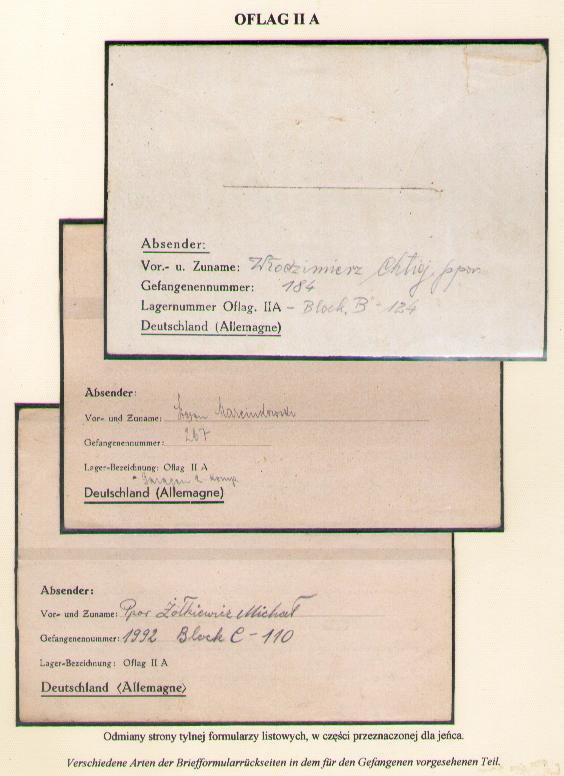 OFLAG II A
Absender:
Vor- u. Zuname: Włodzimierz ppor.
Gefangenennummer: 184
Lagernummer Oflag. IIA - Block, B - 124
Deutschland (Allemagne)
Absender:
Vor- und Zuname:
Gefangenennummer: 267
Lager-Bezeichnung: Oflag II A
Deutschland (Allemagne)
Absender:
Vor- und Zuname: Ppor Żółkiewicz Michał
Gefangenennummer: 1992 Block C - 110
Lager-Bezeichnung: Oflag II A
Deutschland (Allemagne)
Odmiany strony tylnej formularzy listowych, w części przeznaczonej dla jeńca.
Verschiedene Arten der Briefformularrückseiten in dem für den Gefangenen vorgesehenen Teil.